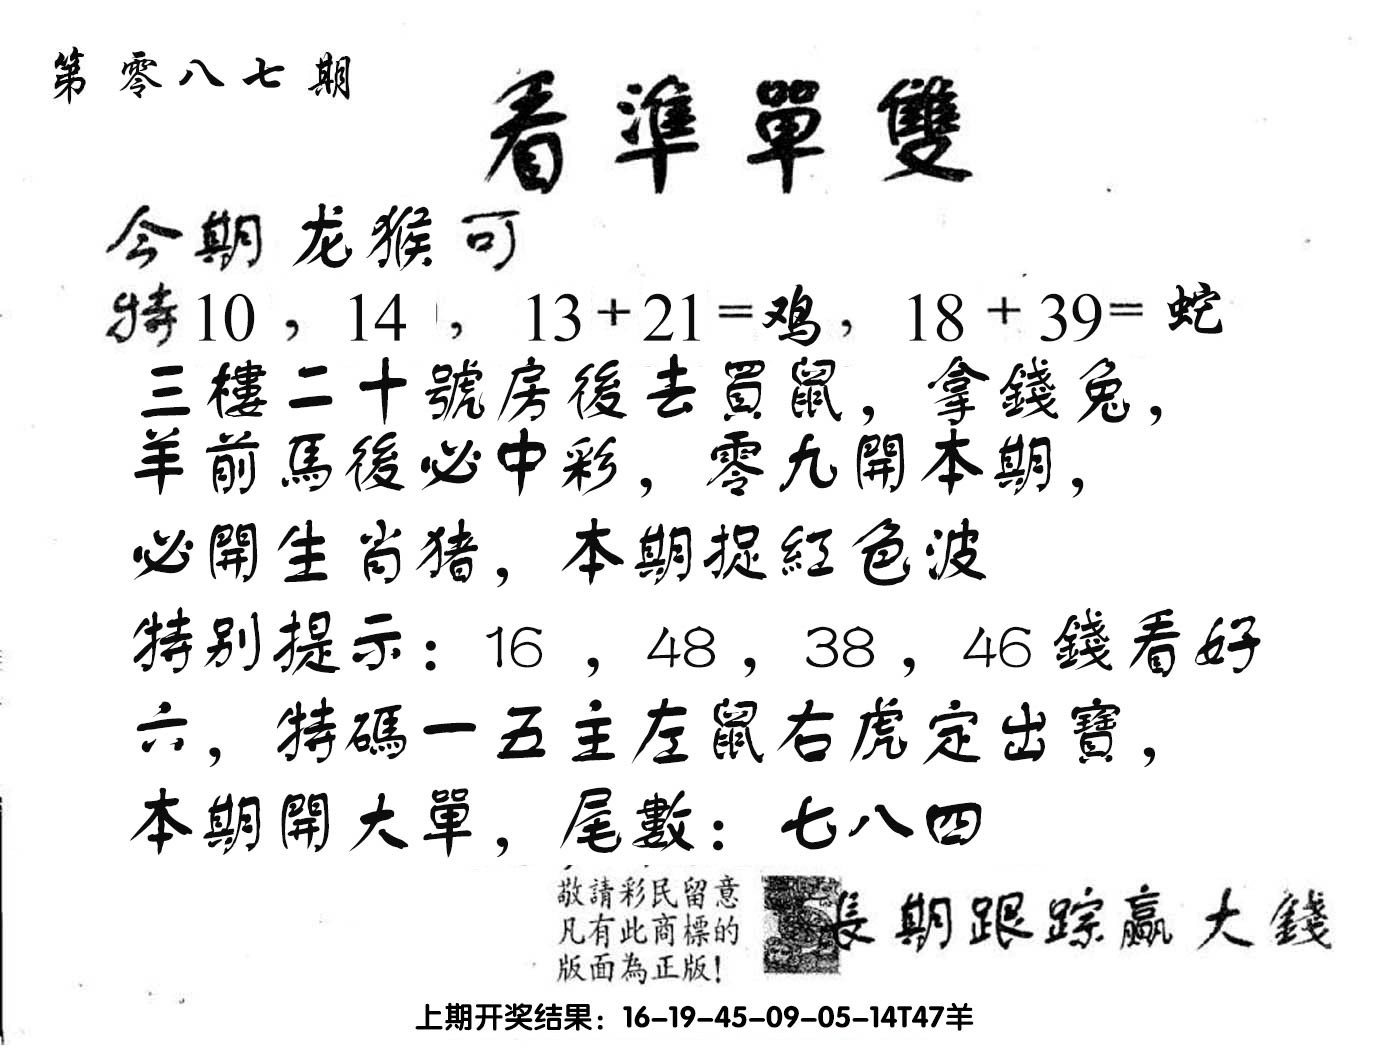 第零八七期
看準單雙
今期龙猴可
特10，14，13+21=鸡，18+39=蛇
三樓二十號房後去買鼠，拿錢兔，
羊前馬後必中彩，零九開本期，
必開生肖猪，本期捉紅色波
特别提示：16，48，38，46錢看好
六，特碼一五主左鼠右虎定出寶，
本期開大單，尾數：七八四
敬請彩民留意
凡有此商標的
版面為正版！
長期跟踪赢大錢
上期开奖结果：16-19-45-09-05-14T47羊